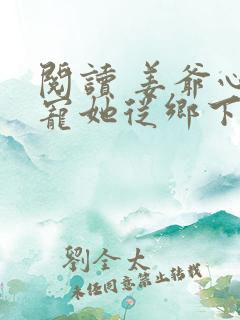 閱讀 姜爺心
寵她從鄉下
劉全太
未經同意禁止轉載